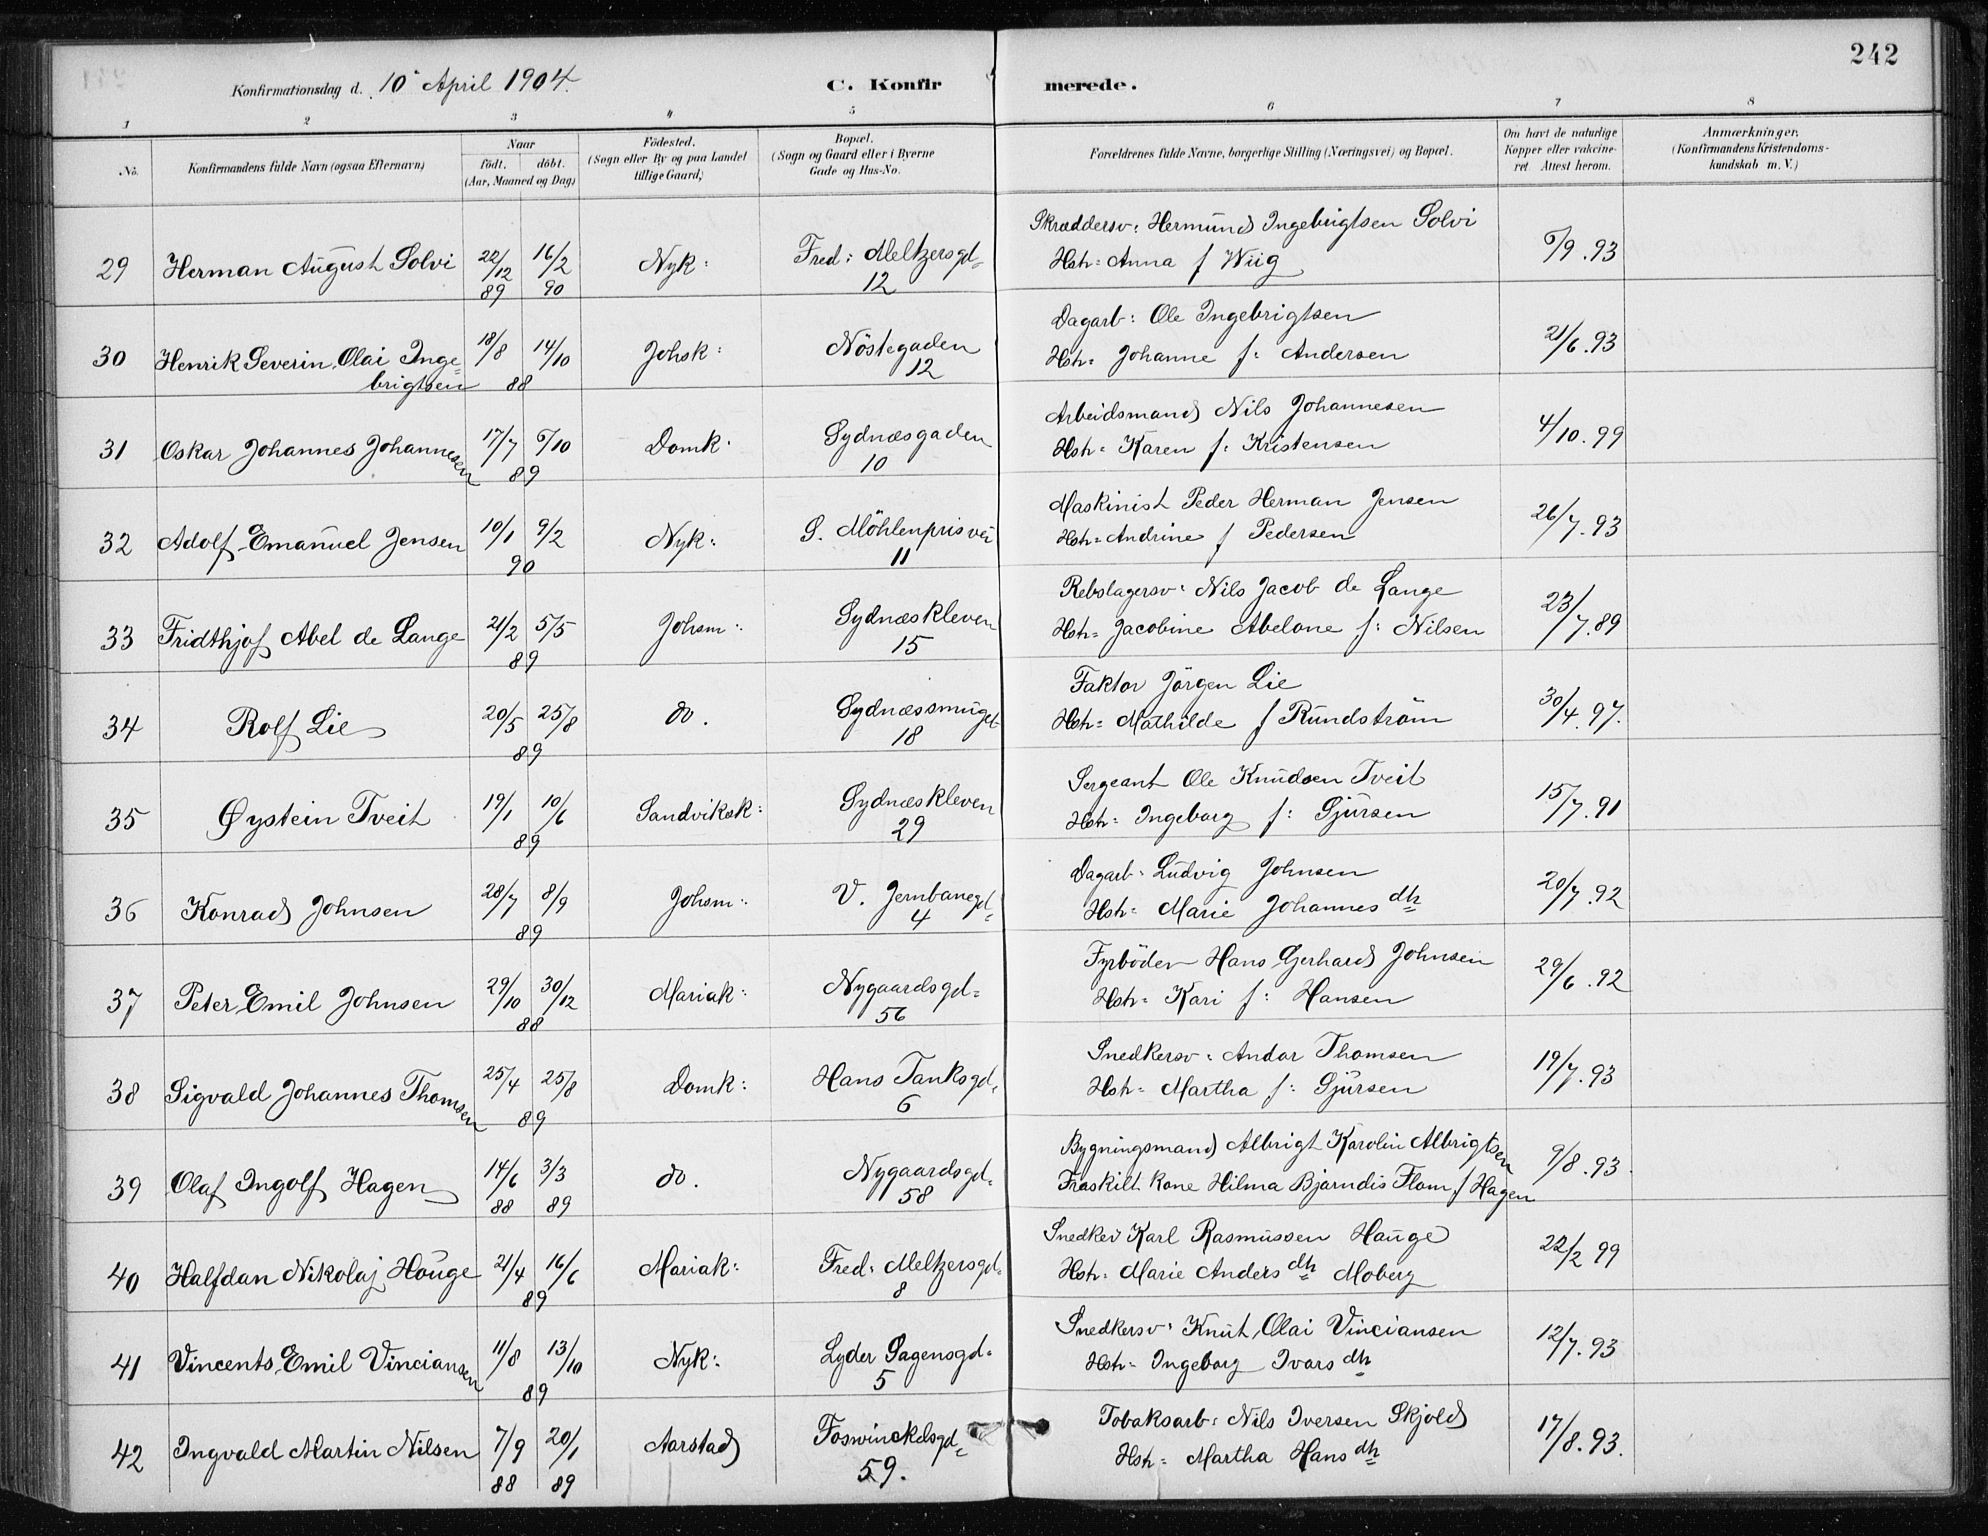 242
Konfirmationsdag d. 10 April 1904. C. Konfirmerede.
1 2 3 4 5 6 7 8
No. Konfirmandens fulde Navn (ogsaa Efternavn) Naar født. døbt. (Aar, Maaned og Dag) Fødested. (Sogn eller By og paa Landet tillige Gaard) Bopæl. (Sogn og Gaard eller i Byerne Gade og Hus-No. Forældrenes fulde Navne, borgerlige Stilling (Næringsvei) og Bopæl. Om havt de naturlige Kopper eller vakcineret. Attest herom. Anmærkninger. (Konfirmandens Kristendomskundskab m. V.)
29 Herman August Solvi 22/12 89 16/2 90 Nyk: Fred: Meltzersgd= 12 Skræddersv: Hermund Ingebrigtsen Solvi
Hstr= Anna f Wiig 5/9.93
30 Henrik Severin Olai Inge= brigtsen 18/8 14/10 88 Johsk: Nöstegaden 12 Dagarb: Ole Ingebrigtsen
Hstr= Johanne f: Andersen 21/6.93
31 Oskar Johannes Johannesen 17/7 6/10 89 Domk: Sydnæsgaden 10 Arbeidsmand Nils Johannesen
Hstr= Karen f: Kristensen 4/10.99
32 Adolf Emanuel Jensen 10/1 9/2 90 Nyk: S. Möhlenprisvei 11 Maskinist Peder Herman Jensen
Hstr= Andrine f Pedersen 26/7.93
33 Fridthjof Abel de Lange 21/2 5/5 89 Johsm: Sydnæskleven 15 Rebslagersv: Nils Jacob de Lange
Hstr= Jacobine Abelone f: Nilsen 23/7.89
34 Rolf Lie 20/5 25/8 89 do. Sydnæssmuget 18 Faktor Jörgen Lie
Hstr= Mathilde f Rundström 30/4.97.
35 Øystein Tveit 19/1 10/6 89 Sandviksk: Sydnæskleven 29 Sergeant Ole Knudsen Tveit
Hstr: Ingeborg f: Gjursen 15/7.91
36 Konrad Johnsen 28/7 8/9 89 Johsm: V. Jernbanegd= 4 Dagarb: Ludvig Johnsen
Hstr= Marie Johannes dtr 20/7.92
37 Peter Emil Johnsen 29/10 30/12 88 Mariak: Nygaardsgd= 56 Fyrböder Hans Gerhard Johnsen
Hstr= Kari f: Hansen 29/6.92
38 Sigvald Johannes Thomsen 25/4 25/8 89 Domk: Hans Tanksgd= 6 Snedkersv: Andor Thomsen
Hstr= Martha f: Gjursen 19/7.93
39 Olaf Ingolf Hagen 14/6 88 3/3 89 do. Nygaardsgd= 58 Bygningsmand Albrigt Karolin Albrigtsen
Fraskilt kone Hilma Bjarndis Flom f Hagen 9/8.93.
40 Halfdan Nikolaj Houge 21/4 16/6 89 Mariak: Fred: Meltzersgd= 8 Snedker Karl Rasmussen Hauge
Hstr: Marie Anders dtr Moberg 22/2 99
41 Vincents Emil Vinciansen 11/8 13/10 89 Nyk: Lyder Sagensgd= 5 Snedkersv: Knut Olai Vinciansen
Hstr= Ingeborg Ivars dtr 12/7.93
42 Ingvald Martin Nilsen 7/9 88 20/1 89 Aarstad Foswinckelsgd= 59. Tobaksarb: Nils Iversen Skjold
Hstr= Martha Hans dtr 17/8.93.